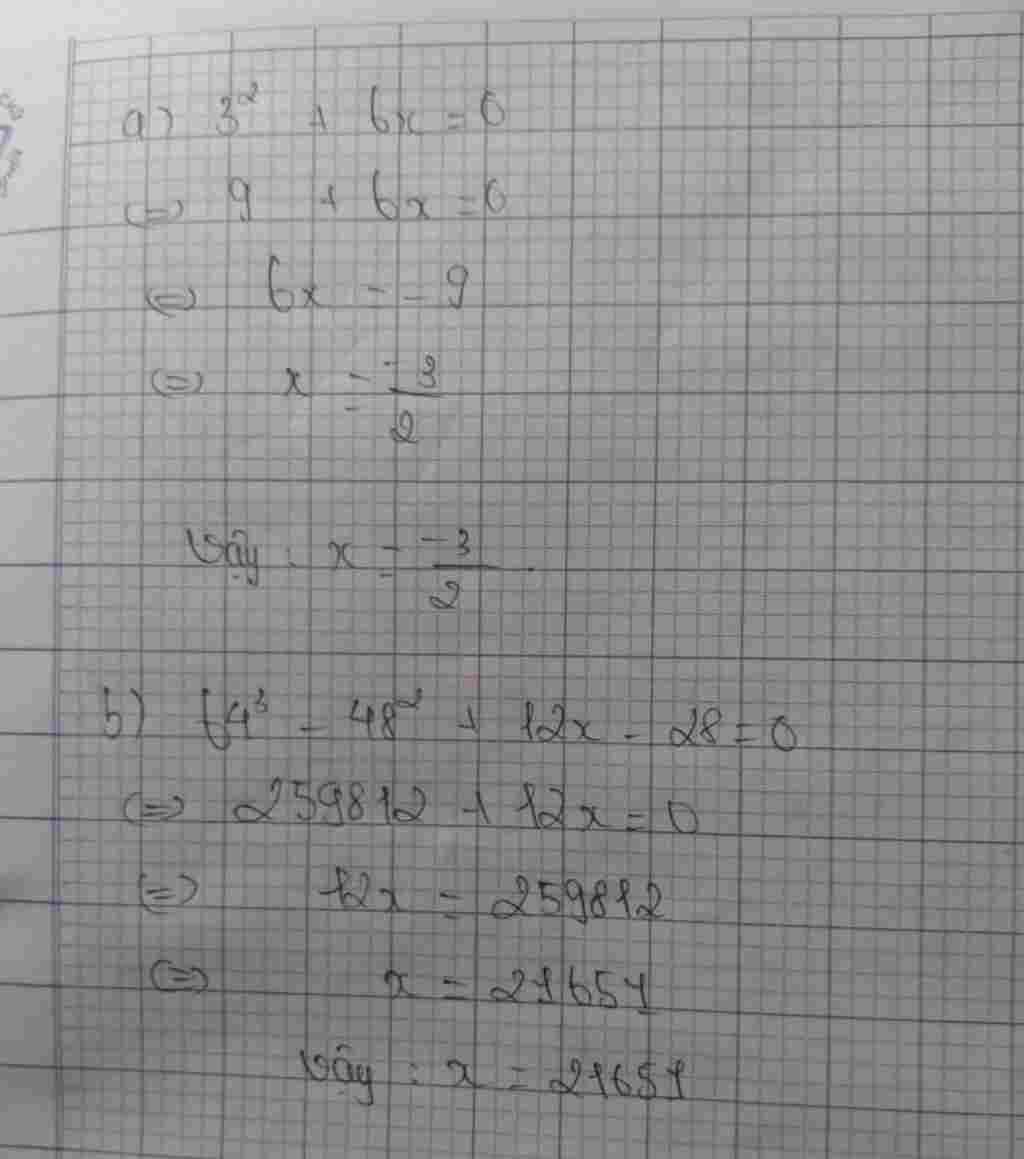 a) 3² + 6x = 0
(=) 9 + 6x = 0
(=) 6x = -9
(=) x = -3/2
Vậy : x = -3/2.
b) 64³ - 48² + 12x - 28 = 0
(=) 259812 + 12x = 0
(=) 12x = 259812
(=) x = 21651
Vậy : x = 21651